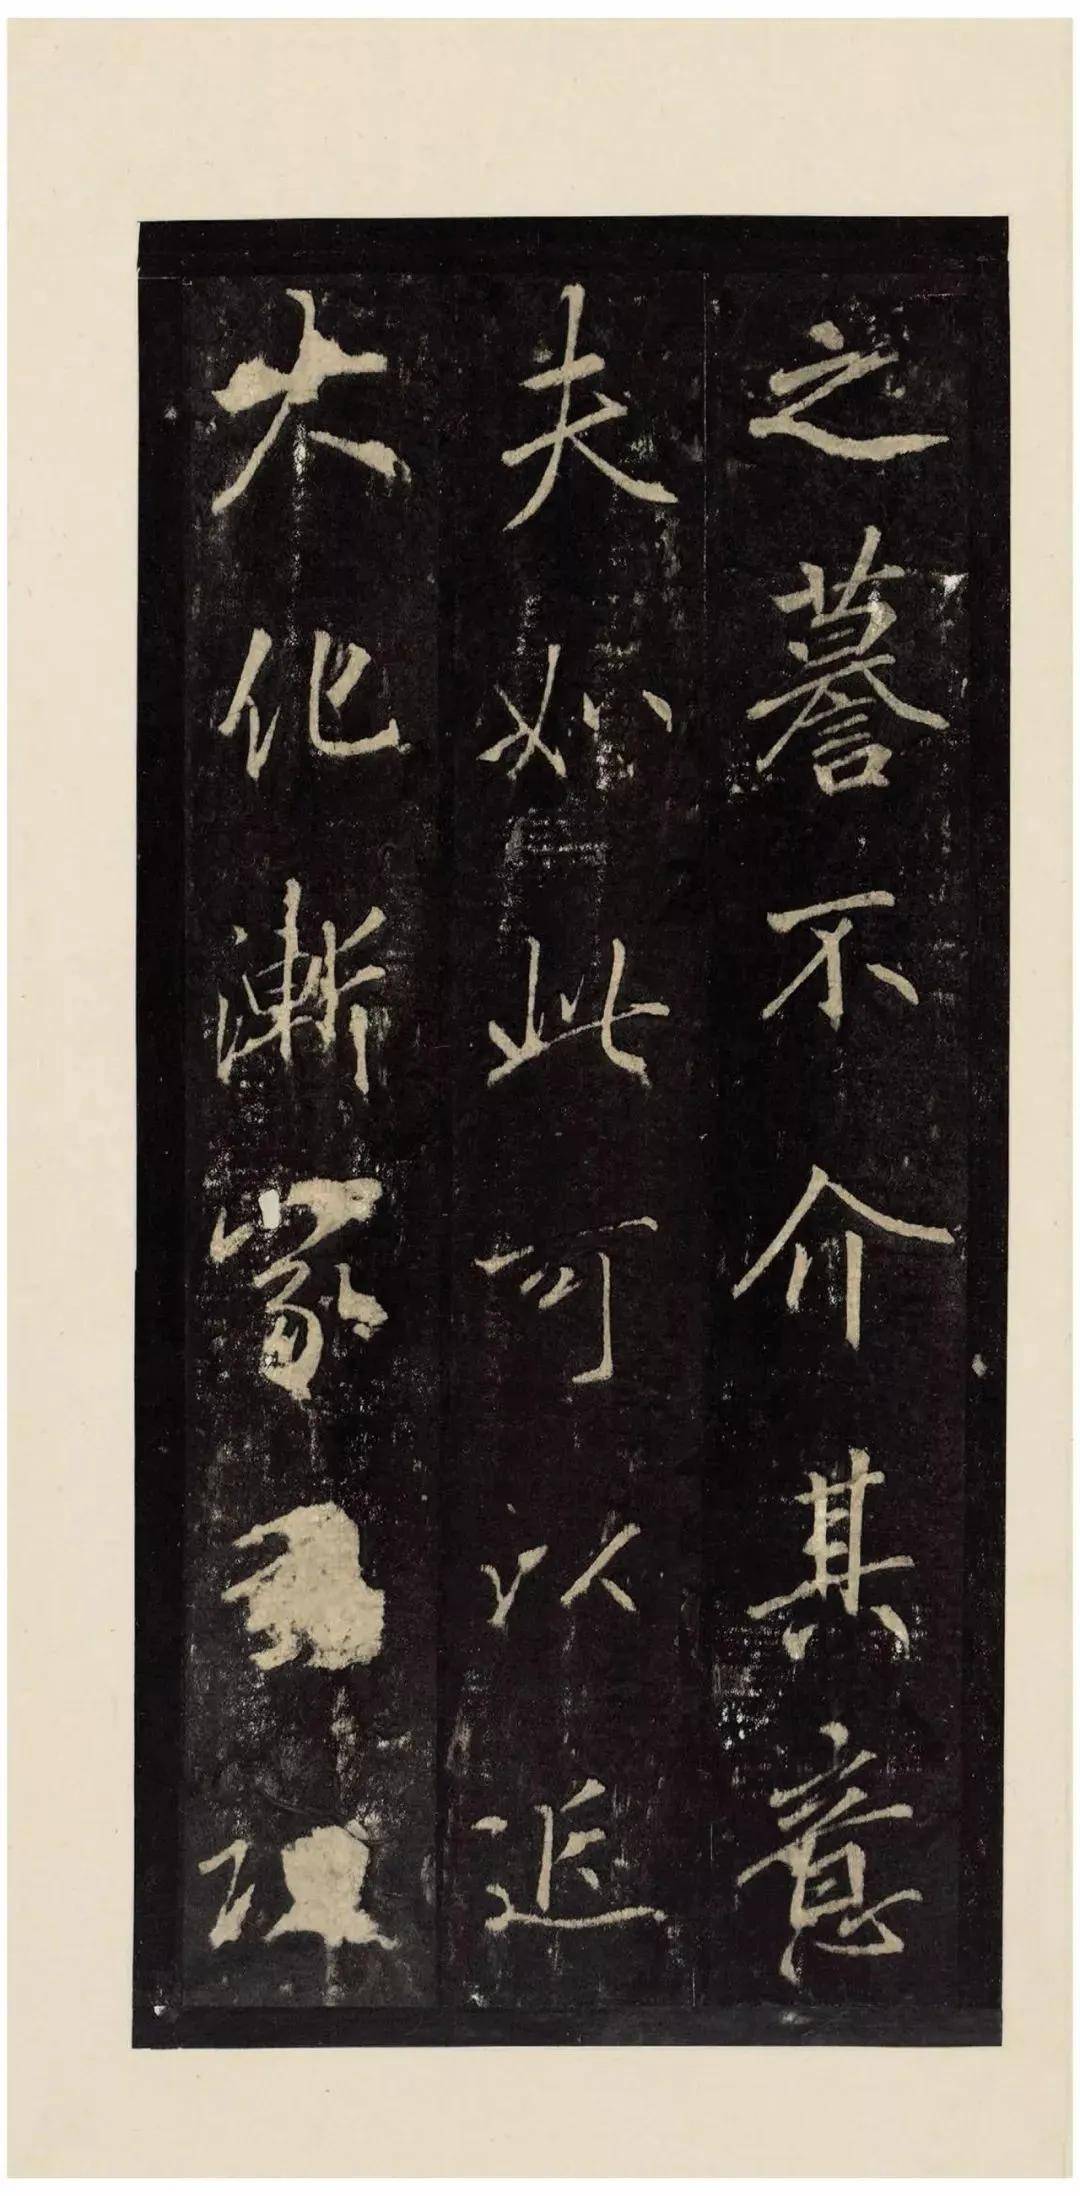 之謩不介其意
夫如此可以近
大化漸